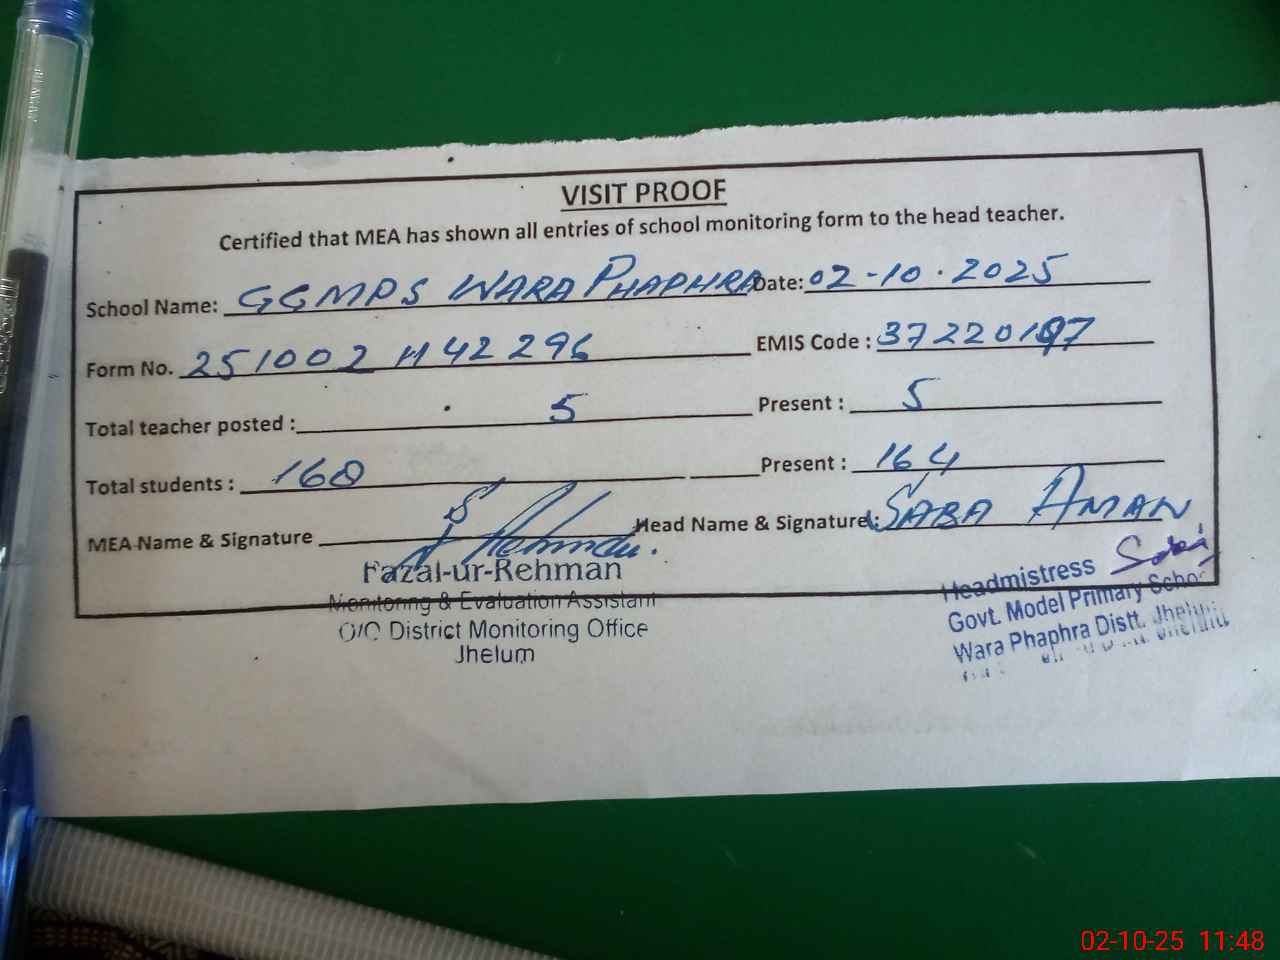 VISIT PROOF
Certified that MEA has shown all entries of school monitoring form to the head teacher.
School Name: GGMPS WARA PHAPHRA Date: 02-10.2025
Form No. 251002 1142296 EMIS Code : 37220197
Total teacher posted : 5 Present : 5
Total students : 168 Present : 164
MEA Name & Signature Head Name & Signature: SABA AMAN
Fazal-ur-Rehman
Monitoring & Evaluation Assistant
O/O District Monitoring Office
Jhelum
Headmistress Saba
Govt. Model Primary School
Wara Phaphra Distt. Jhelum
02-10-25 11:48